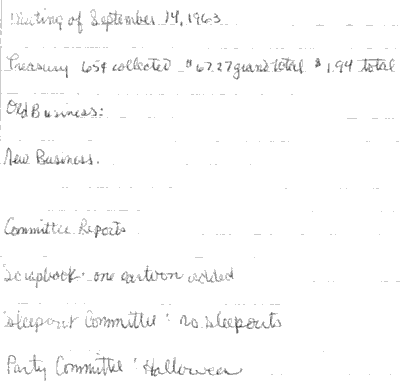 Meeting of September 14, 1963
Treasury 65¢ collected $67.27 grand total $1.94 total
Old Business:
New Business.
Committee Reports
Scrapbook: one cartoon added
Sleepout Committee: no sleepouts
Party Committee: Halloween